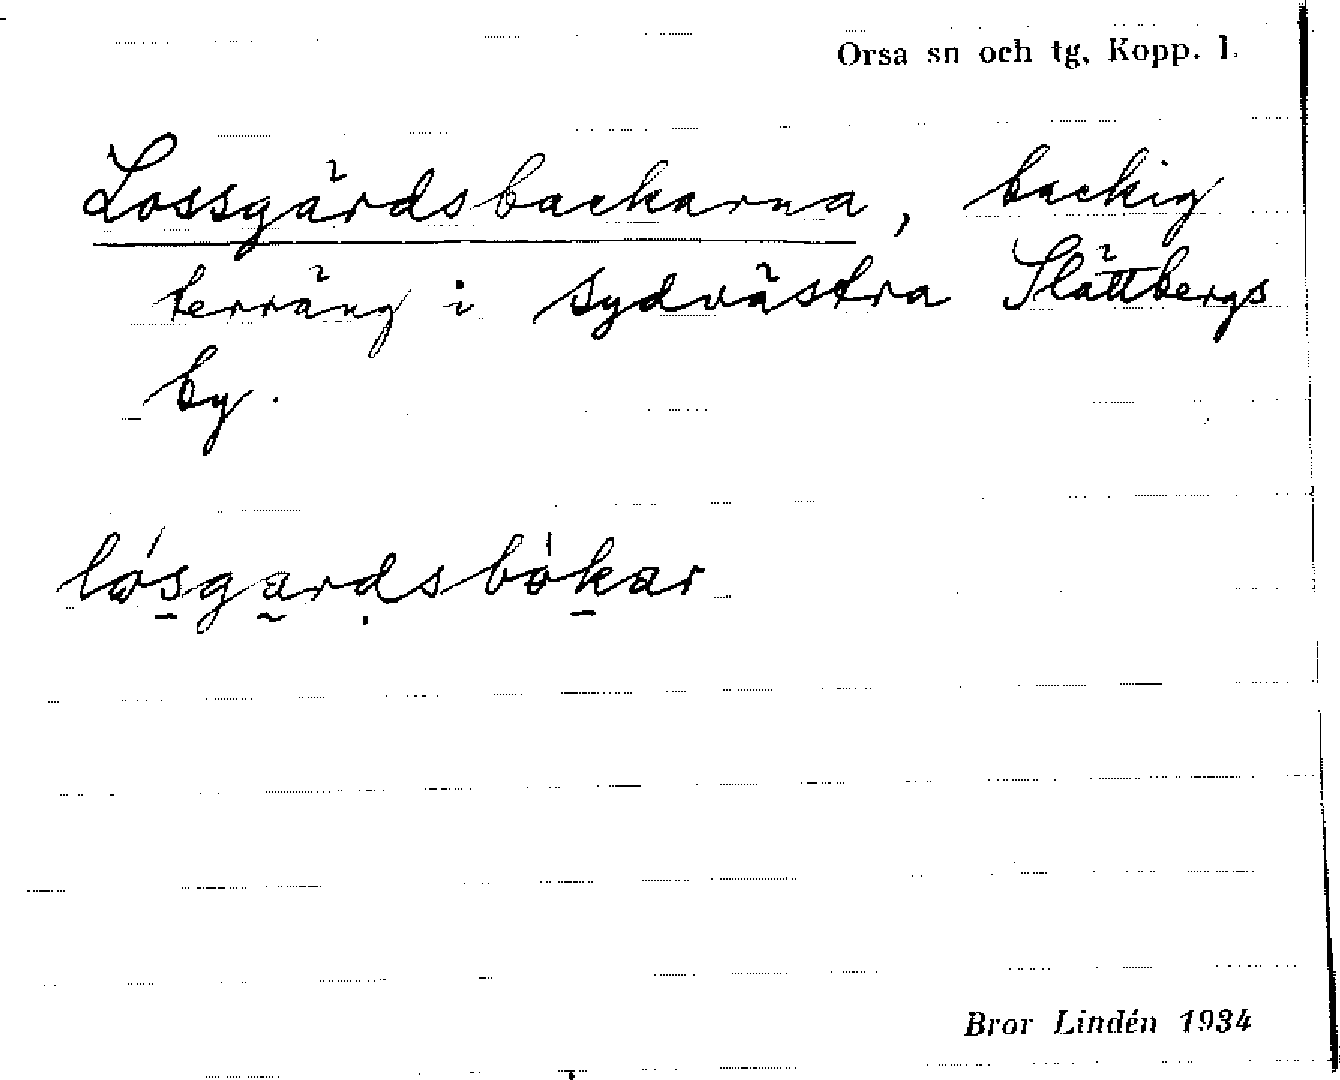 Orsa sn och tg, Kopp. l.
Lossgårdsbackarna, backig
terräng i sydvästra Slättbergs
by.
lósgardsbókar
Bror Lindén 1934